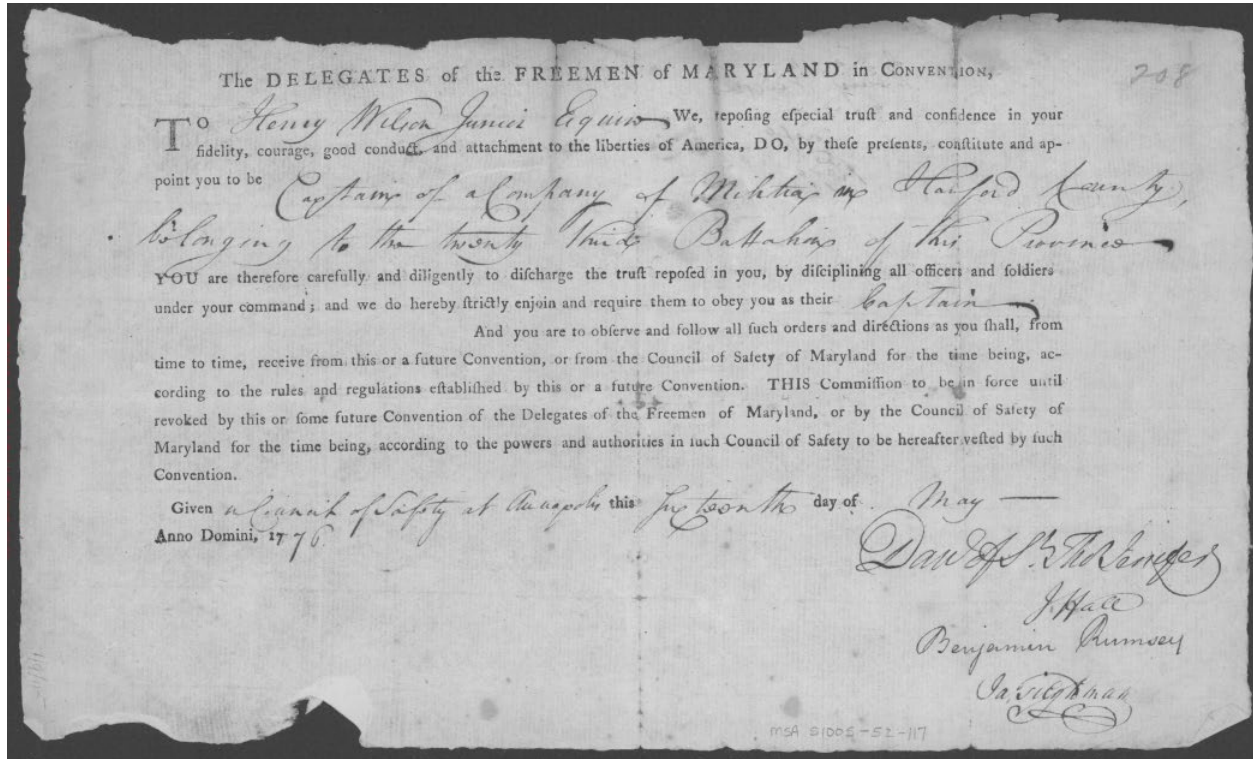 The DELEGATES of the FREEMEN of MARYLAND in CONVENTION,
208
To Henry Wilson Junior Esquire We, repoſing eſpecial truſt and confidence in your
fidelity, courage, good conduct, and attachment to the liberties of America, DO, by theſe preſents, conſtitute and ap-
point you to be Captain of a Company of Militia in Harford County,
belonging to the twenty third Battalion of this Province
YOU are therefore carefully and diligently to diſcharge the truſt repoſed in you, by diſciplining all officers and ſoldiers
under your command; and we do hereby ſtrictly enjoin and require them to obey you as their Captain
And you are to obſerve and follow all ſuch orders and directions as you ſhall, from
time to time, receive from this or a future Convention, or from the Council of Safety of Maryland for the time being, ac-
cording to the rules and regulations eſtabliſhed by this or a future Convention. THIS Commiſſion to be in force until
revoked by this or ſome future Convention of the Delegates of the Freemen of Maryland, or by the Council of Safety of
Maryland for the time being, according to the powers and authorities in ſuch Council of Safety to be hereafter veſted by ſuch
Convention.
Given in Council of Safety at Annapolis this Sixteenth day of May —
Anno Domini, 1776
Dan of St. Thos Jenifer
J Hall
Benjamin Rumsey
Ja. Tilghman
MSA S1005-52-117